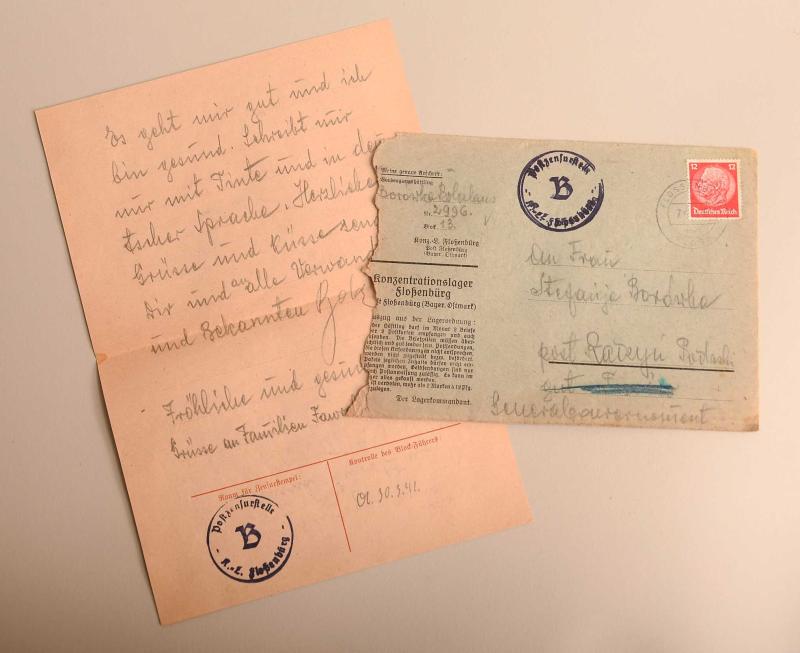 Es geht mir gut und ich
bin gesund. Schreibt mir
nur mit Tinte und in deu
tscher Sprache. Herzliche
Grüsse und Küsse send
Dir und an alle Verwand
und Bekannten
Fröhliche und gesun
Grüsse an Familien
Raum für Zensurstempel:
Kontrolle des Block-Führers:
30.3.41.
Postzensurstelle
B
K.-L. Floßenbürg
Meine genaue Anschrift:
Borowka
Nr. 2996.
Block 13.
Konz.-L. Floßenbürg
Post Floßenbürg
(Bayer. Ostmark)
Konzentrationslager
Floßenbürg
Floßenbürg (Bayer. Ostmark)
uszug aus der Lagerordnung:
der Häftling darf im Monat 2 Briefe
der 2 Postkarten empfangen und auch
Die Briefzeilen müssen über-
sichtlich und gut lesbar sein. Postsendungen,
die diesen Anforderungen nicht entsprechen,
werden nicht zugestellt bezw. befördert.
Pakete jeglichen Inhalts dürfen nicht em-
pfangen werden. Geldsendungen sind nur
durch Postanweisung zulässig. Es kann im
ger alles gekauft werden.
Der Lagerkommandant.
Postzensurstelle
B
K.-L. Floßenbürg
12 12
Deutsches Reich
An Frau
Stefanja Borówka
post
Generalgouvernement